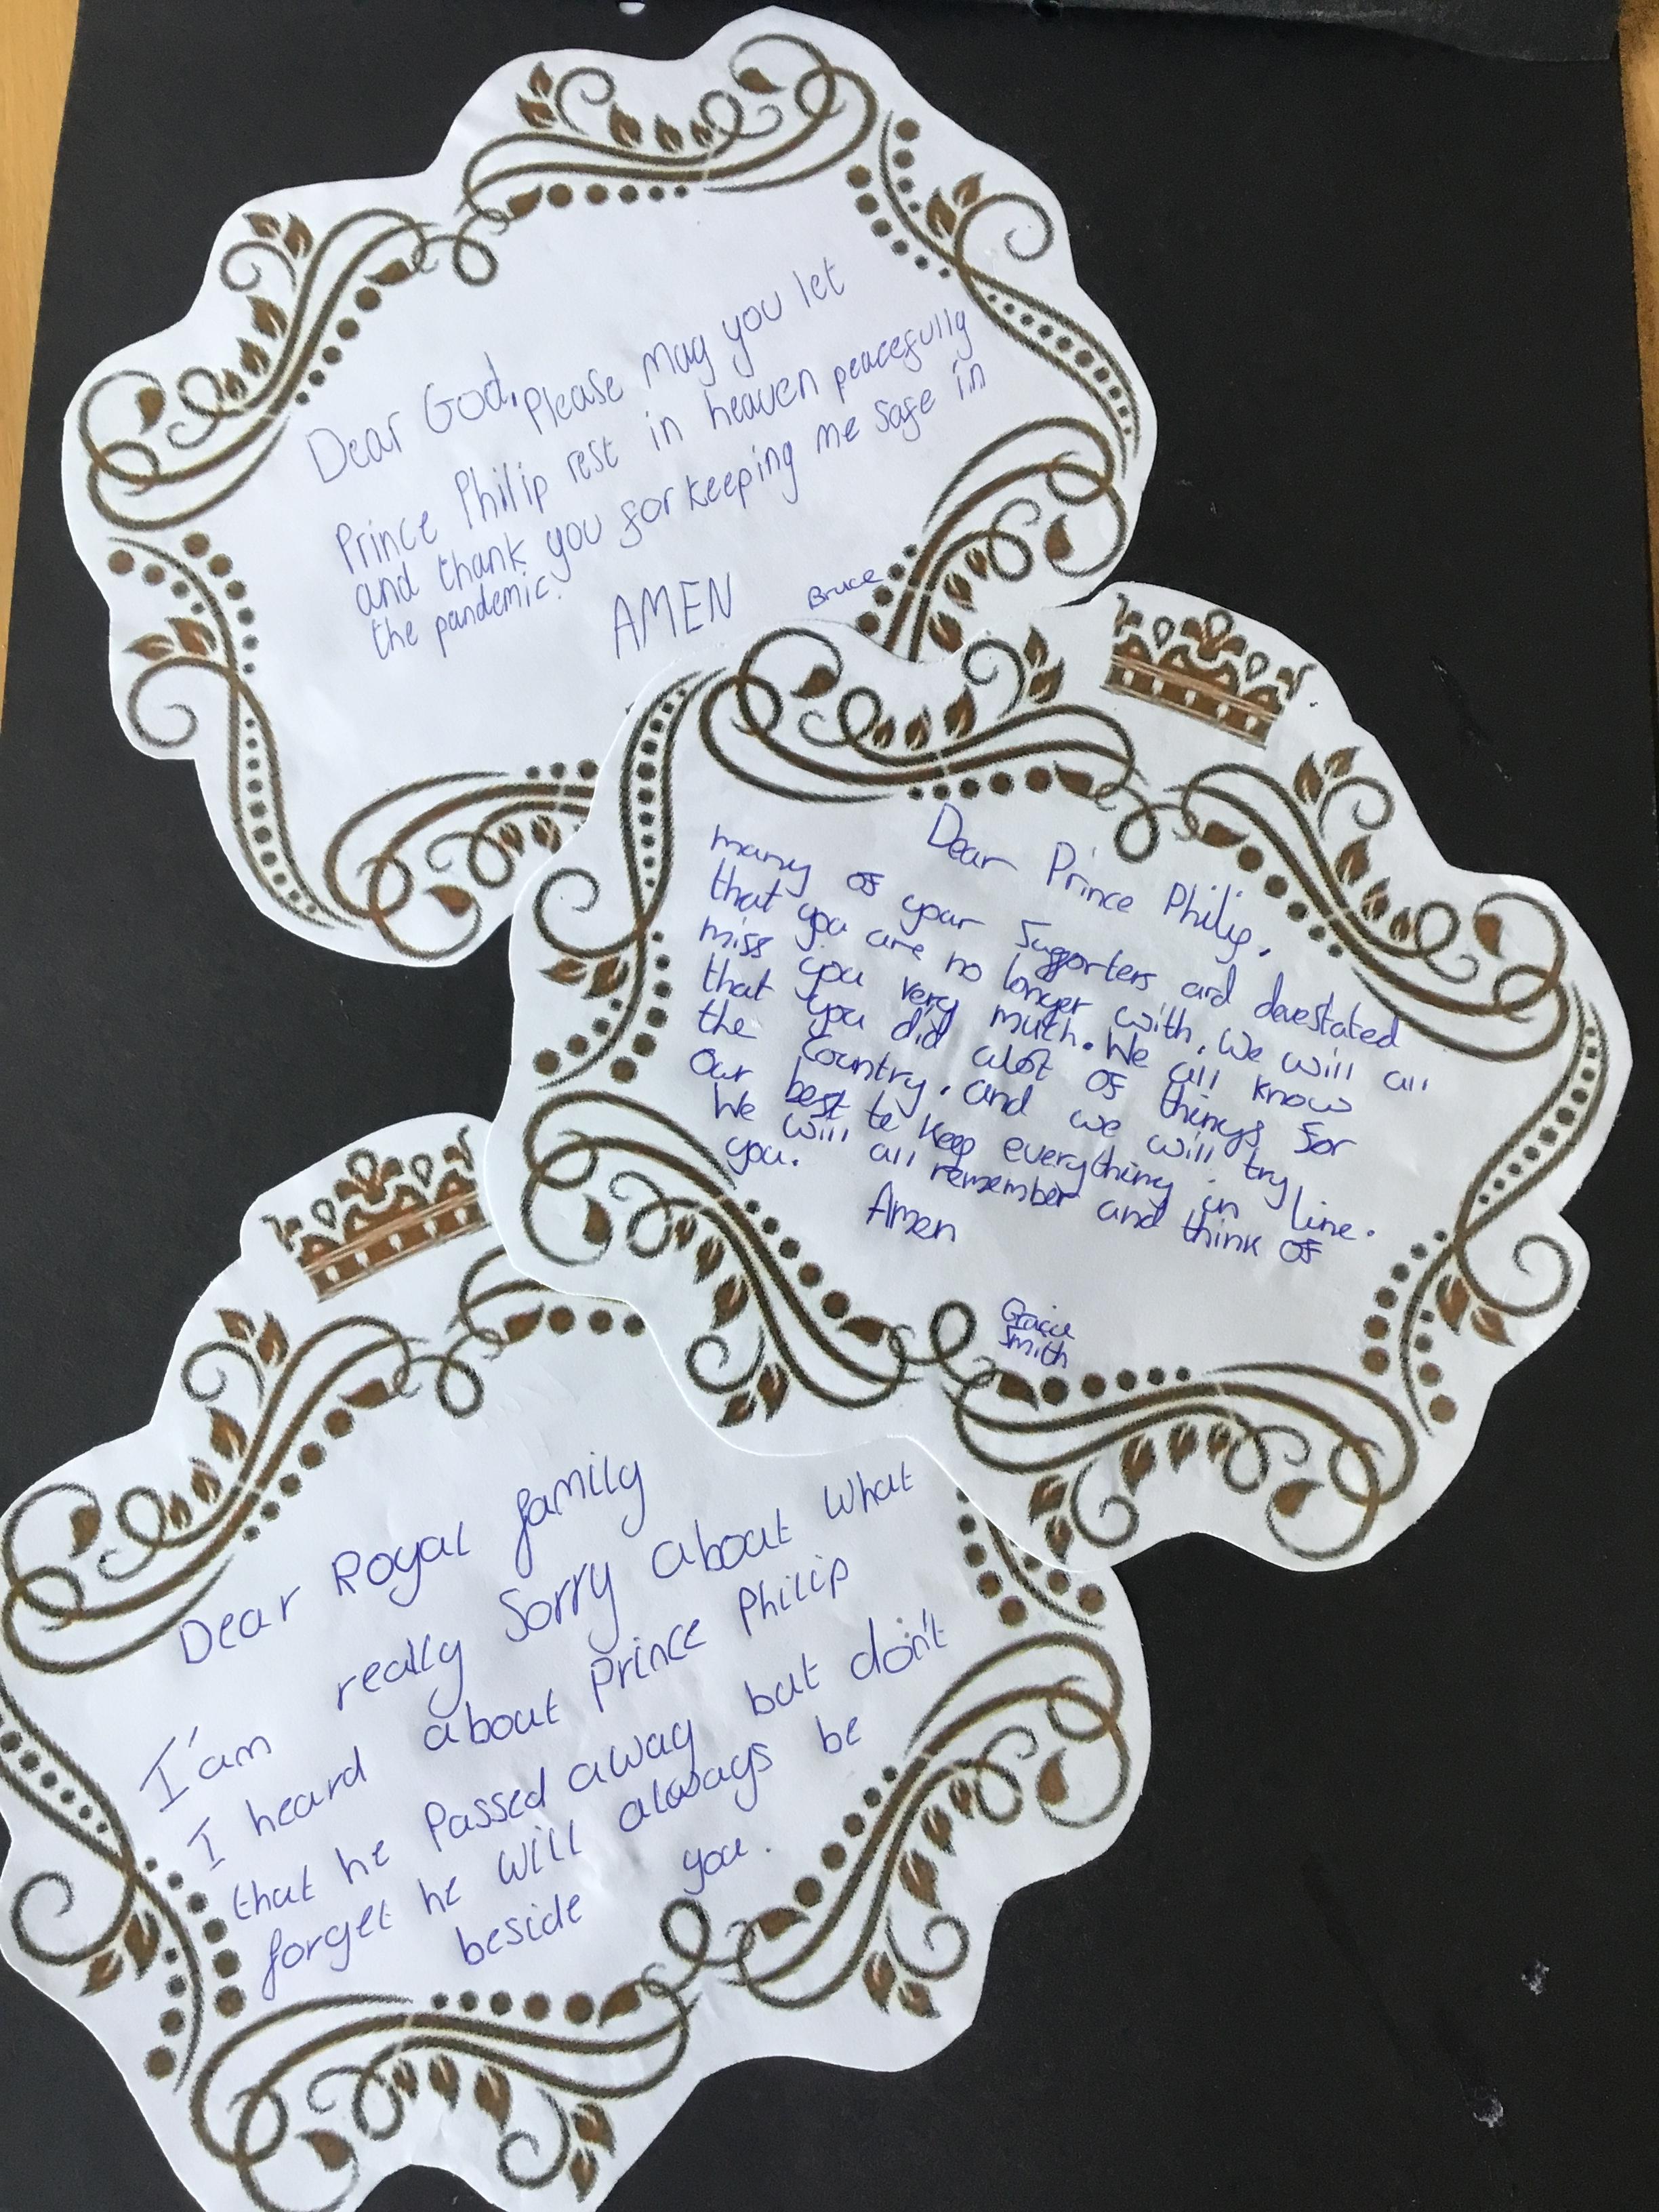 Dear God, please may you let
Prince Philip rest in heaven peacefully
and thank you for keeping me safe in
the pandemic.
AMEN
Bruce
Dear Prince Philip,
many of your supporters ard devestated
that you are no longer with. We will all
miss you very much. We all know
that you did alot of things for
the country. and we will try
our best to keep everything in line.
We will all remember and think of
you.
Amen
Gracie
Smith
Dear Royal family
I'am really Sorry about what
I heard about prince Philip
that he Passed away but don't
forget he will always be
beside you.